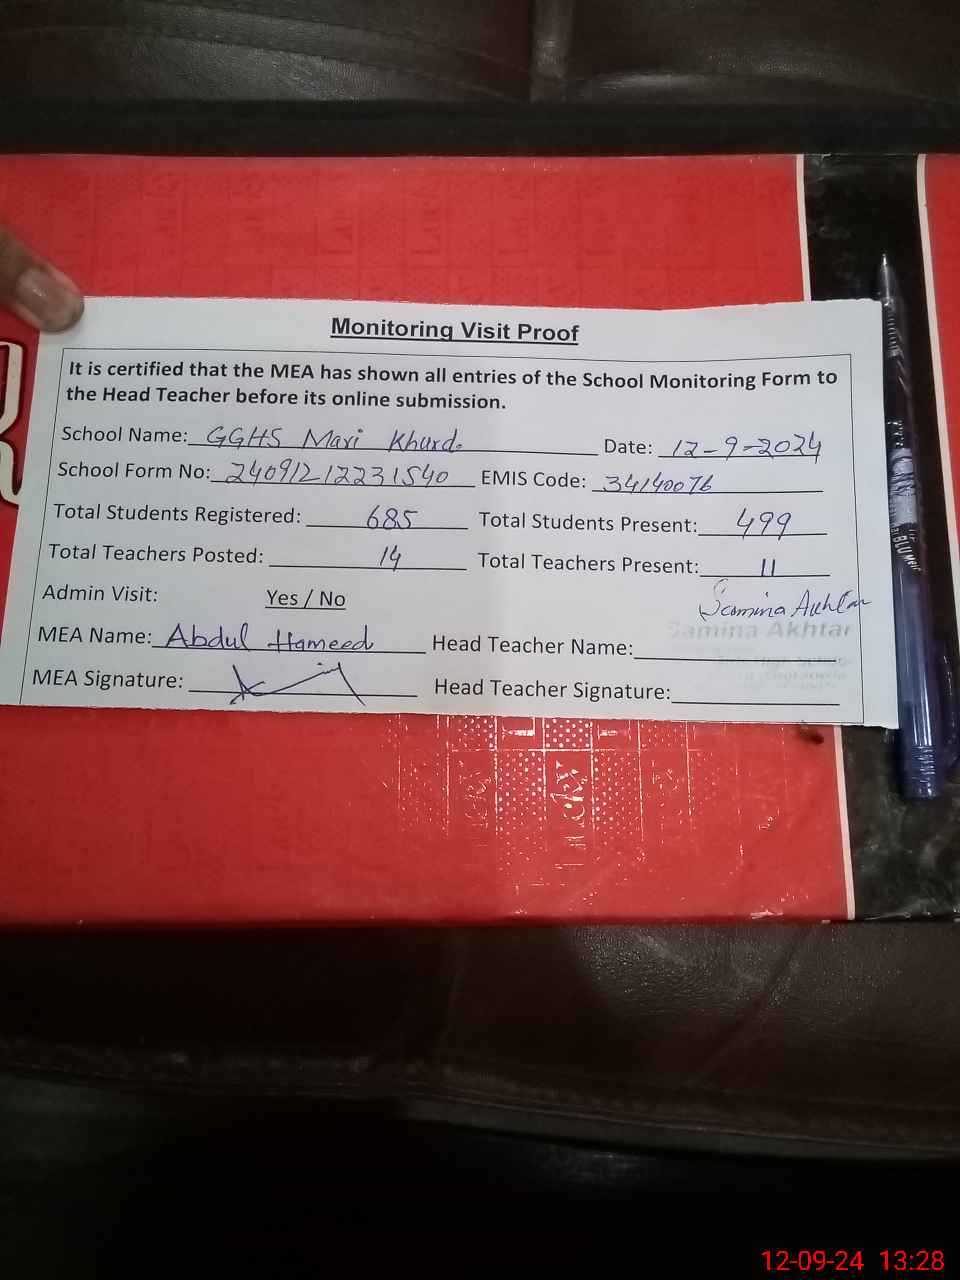 Monitoring Visit Proof
It is certified that the MEA has shown all entries of the School Monitoring Form to
the Head Teacher before its online submission.
School Name: GGHS Mari Khurd. Date: 12-9-2024
School Form No: 24091212231540 EMIS Code: 34140076
Total Students Registered: 685 Total Students Present: 499
Total Teachers Posted: 14 Total Teachers Present: 11
Admin Visit: Yes / No Samina Akhtar
Samina Akhtar
MEA Name: Abdul Hameed Head Teacher Name:
MEA Signature: Head Teacher Signature:
LUCKY
12-09-24 13:28